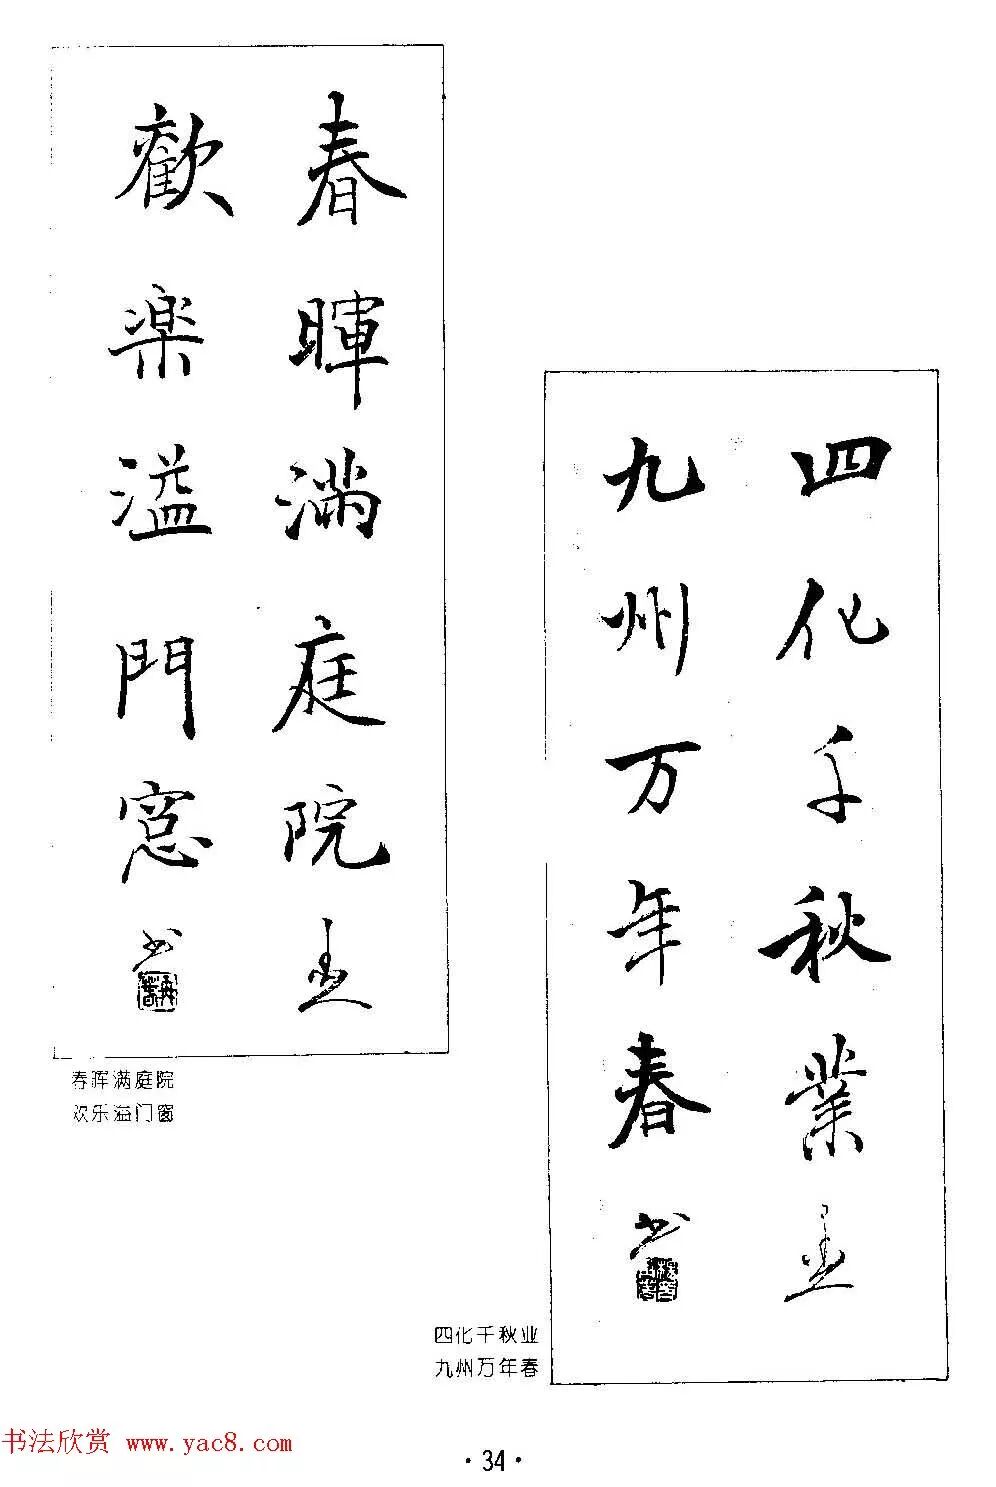 春暉满庭院
歡楽溢門窓
书
春晖满庭院
欢乐溢门窗
四化千秋業
九州万年春
书
四化千秋业
九州万年春
书法欣赏 www.yac8.com
·34·